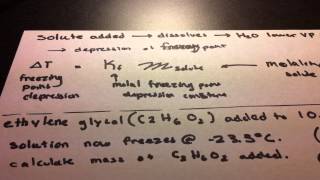 solute added → dissolves → H2O lower VP
→ depression of freezing point
ΔT = Kf m solute ← molality solute
freezing point depression
↑ molal freezing point depression constant
ethylene glycol (C2H6O2) added to 10.
solution now freezes @ -23.3°C.
calculate mass of C2H6O2 added.